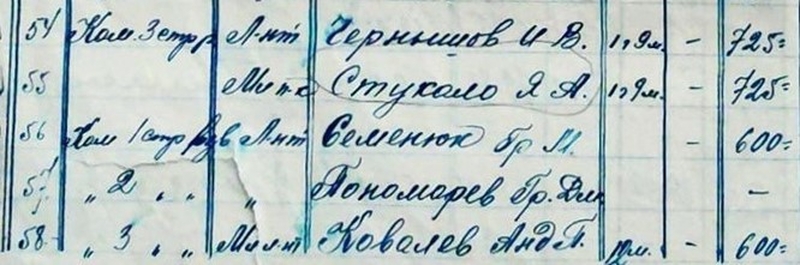 54 Ком. 3 стр р Л-нт Чернышов И В. 1 г 9 м. - 725=
55 Мл Стукало Я А. 1 г 9 м. - 725=
56 Ком 1 стр взв Л-нт Семенюк Гр М. - 600=
57 " 2 " " " Пономарев Гр. -
58 - " 3 " " Мл л-нт Ковалев Анд П. м. - 600=